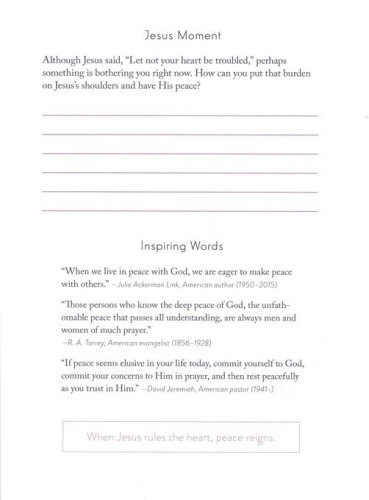 Jesus Moment
Although Jesus said, “Let not your heart be troubled,” perhaps
something is bothering you right now. How can you put that burden
on Jesus’s shoulders and have His peace?
Inspiring Words
“When we live in peace with God, we are eager to make peace
with others.” —Julie Ackerman Link, American author (1950–2015)
“Those persons who know the deep peace of God, the unfath-
omable peace that passes all understanding, are always men and
women of much prayer.”
—R. A. Torrey, American evangelist (1856–1928)
“If peace seems elusive in your life today, commit yourself to God,
commit your concerns to Him in prayer, and then rest peacefully
as you trust in Him.” —David Jeremiah, American pastor (1941–)
When Jesus rules the heart, peace reigns.